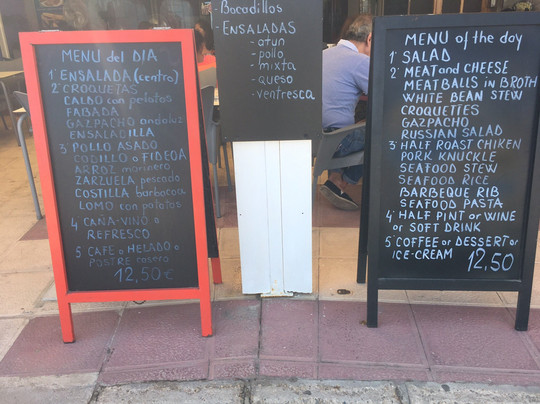 MENU del DIA
1º ENSALADA (centro)
2º CROQUETAS
CALDO con pelotas
FABADA
GAZPACHO andaluz
ENSALADILLA
3º POLLO ASADO
CODILLO o FIDEOA
ARROZ marinero
ZARZUELA pescado
COSTILLA barbacoa
LOMO con patatas
4º CAÑA-VINO o
REFRESCO
5º CAFE o HELADO o
POSTRE casero
12,50 €
- Bocadillos -
- ENSALADAS
- atun
- pollo
- mixta
- queso
- ventresca
MENU of the day
1º SALAD
2º MEAT and CHEESE
MEATBALLS in BROTH
WHITE BEAN STEW
CROQUETTES
GAZPACHO
RUSSIAN SALAD
3º HALF ROAST CHIKEN
PORK KNUCKLE
SEAFOOD STEW
SEAFOOD RICE
BARBEQUE RIB
SEAFOOD PASTA
4º HALF PINT or WINE
or SOFT DRINK
5º COFFEE or DESSERT or
ICE-CREAM 12,50